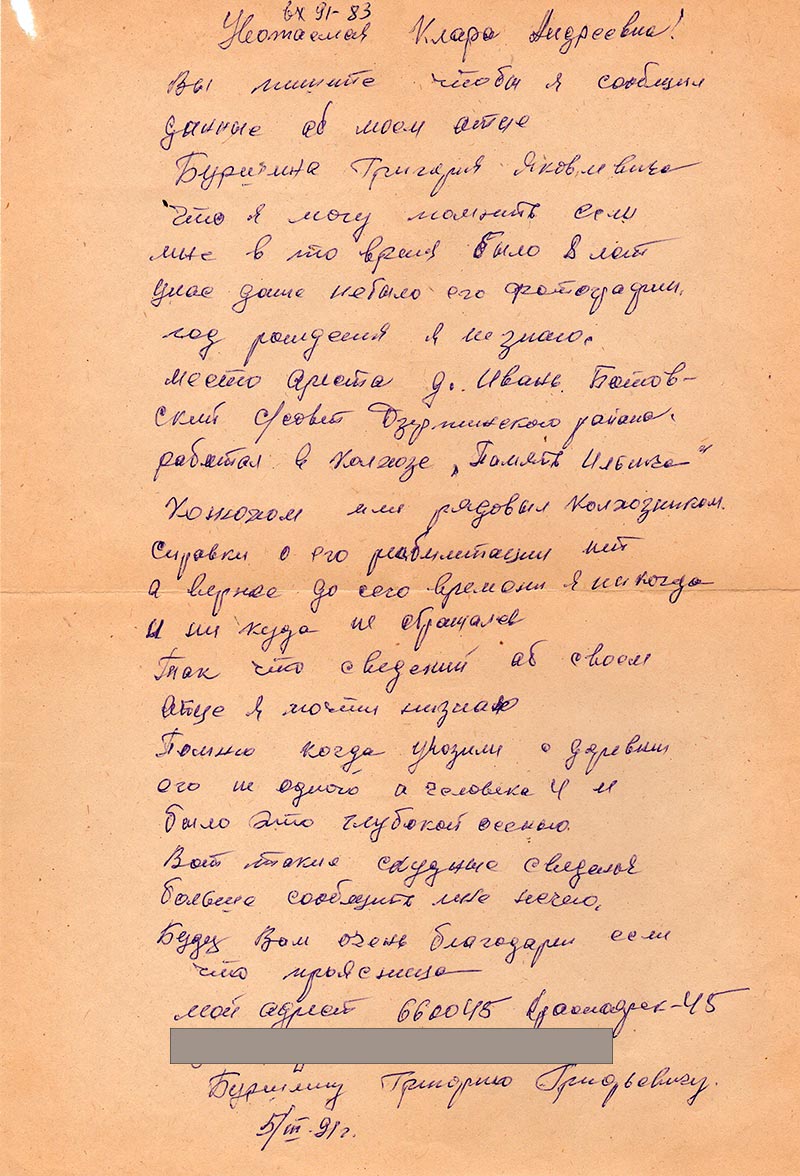 вх 91-83
Уважаемая Клара Андреевна!
Вы пишите чтобы я сообщил
данные об моем отце
Григория Яковлевича
Что я могу помнить если
мне в то время было 8 лет
унас даже небыло его фотографии.
год рождения я не знаю.
место ареста д. Ивань.
ский с/совет Дзержинского района.
работал в колхозе „Память Ильича"
Конюхом или рядовым колхозником.
Справки о его реабилитации нет
а вернее до сего времени я никогда
и ни куда не обращался
Так что сведений об своем
отце я почти низнаю
Помню когда увозили с деревни
его не одного а человека 4 и
было это глубокой осенью.
Вот такие скудные сведенья
больше сообщить мне нечего.
Буду Вам очень благодарен если
что проясница
мой адрес 660045 Красноярск-45
Григорию Григорьевичу.
5/III-91г.